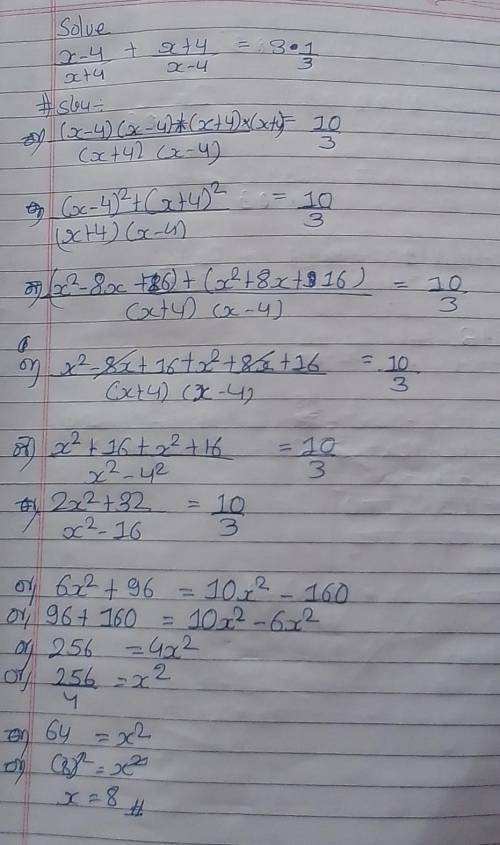 Solve
x-4/x+4 + x+4/x-4 = 3 1/3
# Soln:-
or, (x-4)(x-4)+(x+4)×(x+4)/(x+4)(x-4) = 10/3
or, (x-4)²+(x+4)²/(x+4)(x-4) = 10/3
or, (x²-8x+16)+(x²+8x+16)/(x+4)(x-4) = 10/3
or, x²-8x+16+x²+8x+16/(x+4)(x-4) = 10/3
or, x²+16+x²+16/x²-4² = 10/3
or, 2x²+32/x²-16 = 10/3
or, 6x²+96 = 10x²-160
or, 96+160 = 10x²-6x²
or, 256 = 4x²
or, 256/4 = x²
or, 64 = x²
or, (8)² = x²
x = 8 #